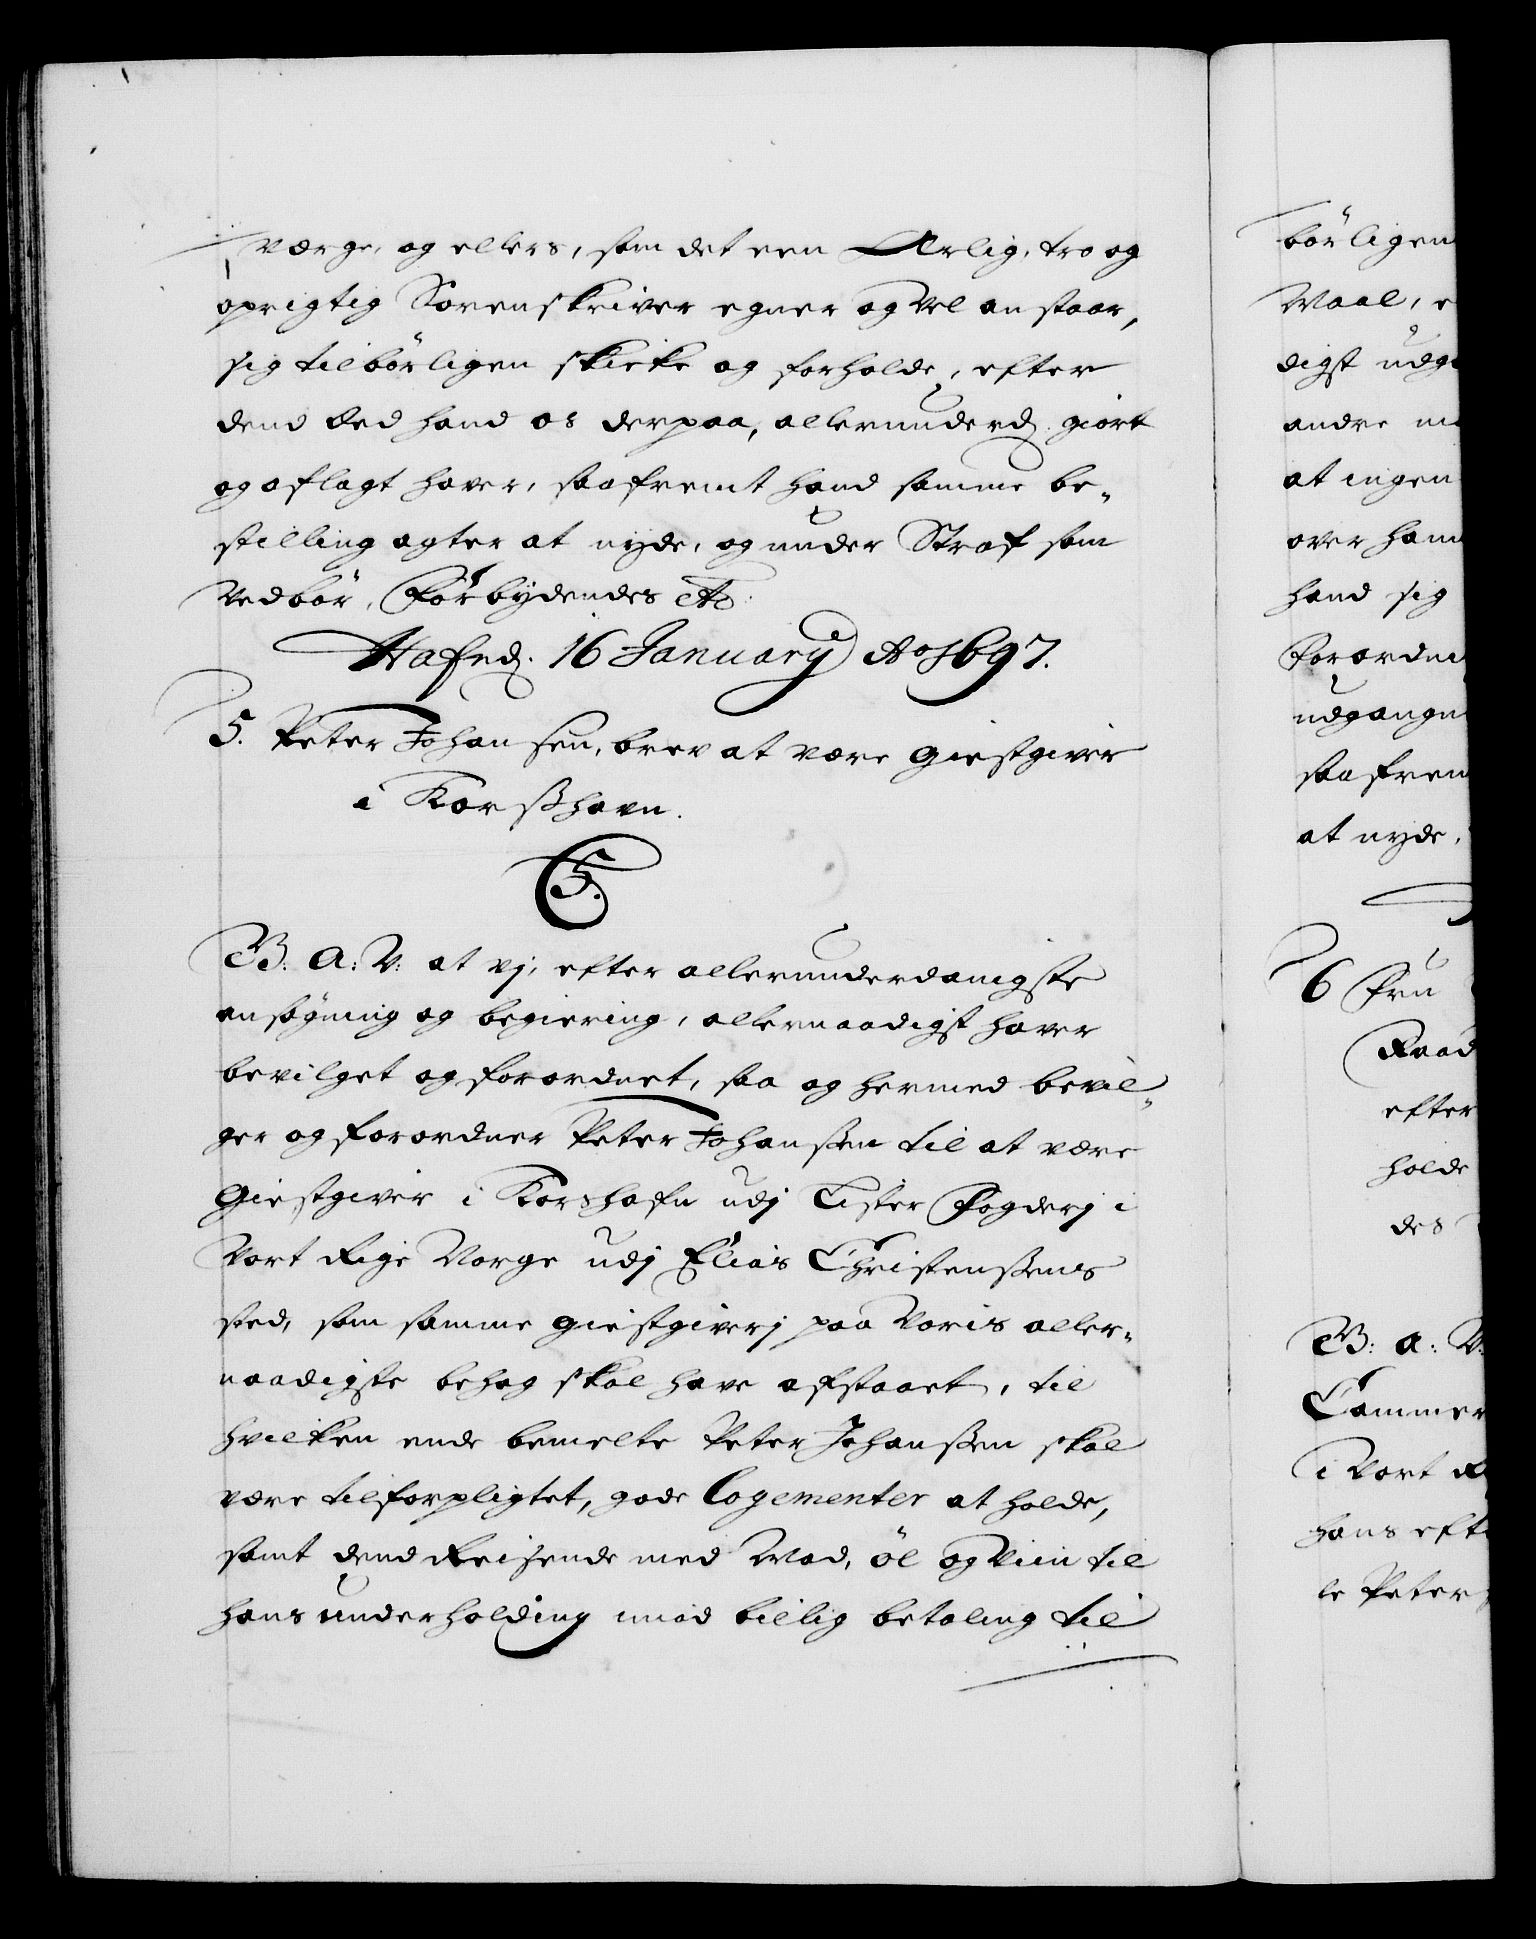 værge, og ellers, som det een Ærlig, tro og
oprigtig Sorenskriver egner og vel anstaar,
sig tilbörligen skicke og forholde, efter
dend Eed hand os derpaa, allerunderd. giort
og aflagt haver, saafremt hand samme be„
stilling agter at nyde, og under Straf som
vedbör, Forbydendes etc:
Hafnd. 16 Januarij Ao 1697.
5. Peter Johansen, brev at være giestgiver
i Korsshavn.
5.
G. A: V: at vj, efter allerunderdanigste
ansögning og begiering, allernaadigst haver
bevilget og forordnet, saa og hermed bevil„
ger og forordner Peter Johanssen til at være
Giestgiver i Korshafn udj Lister Fogderj i
Vort Rige Norge udj Elias Christenssens
sted, som samme giestgiverj paa Voris aller„
naadigste behag skal have afstaaet, til
hvilken ende bemelte Peter Johanssen skal
være tilforpligtet, gode Logementer at holde,
samt dend Reisende med Mad, öl og Viin til
hans underholding imod billig betaling til
börligen
Maal, e
digst udg
andre
at ingen
over ham
hand sig
forordni
udgangn
saafrem
at nyde,
6 Fru
Raad
efter
holde
des
G: a: V:
Cammer
i Vort R
hans eft
le Peter